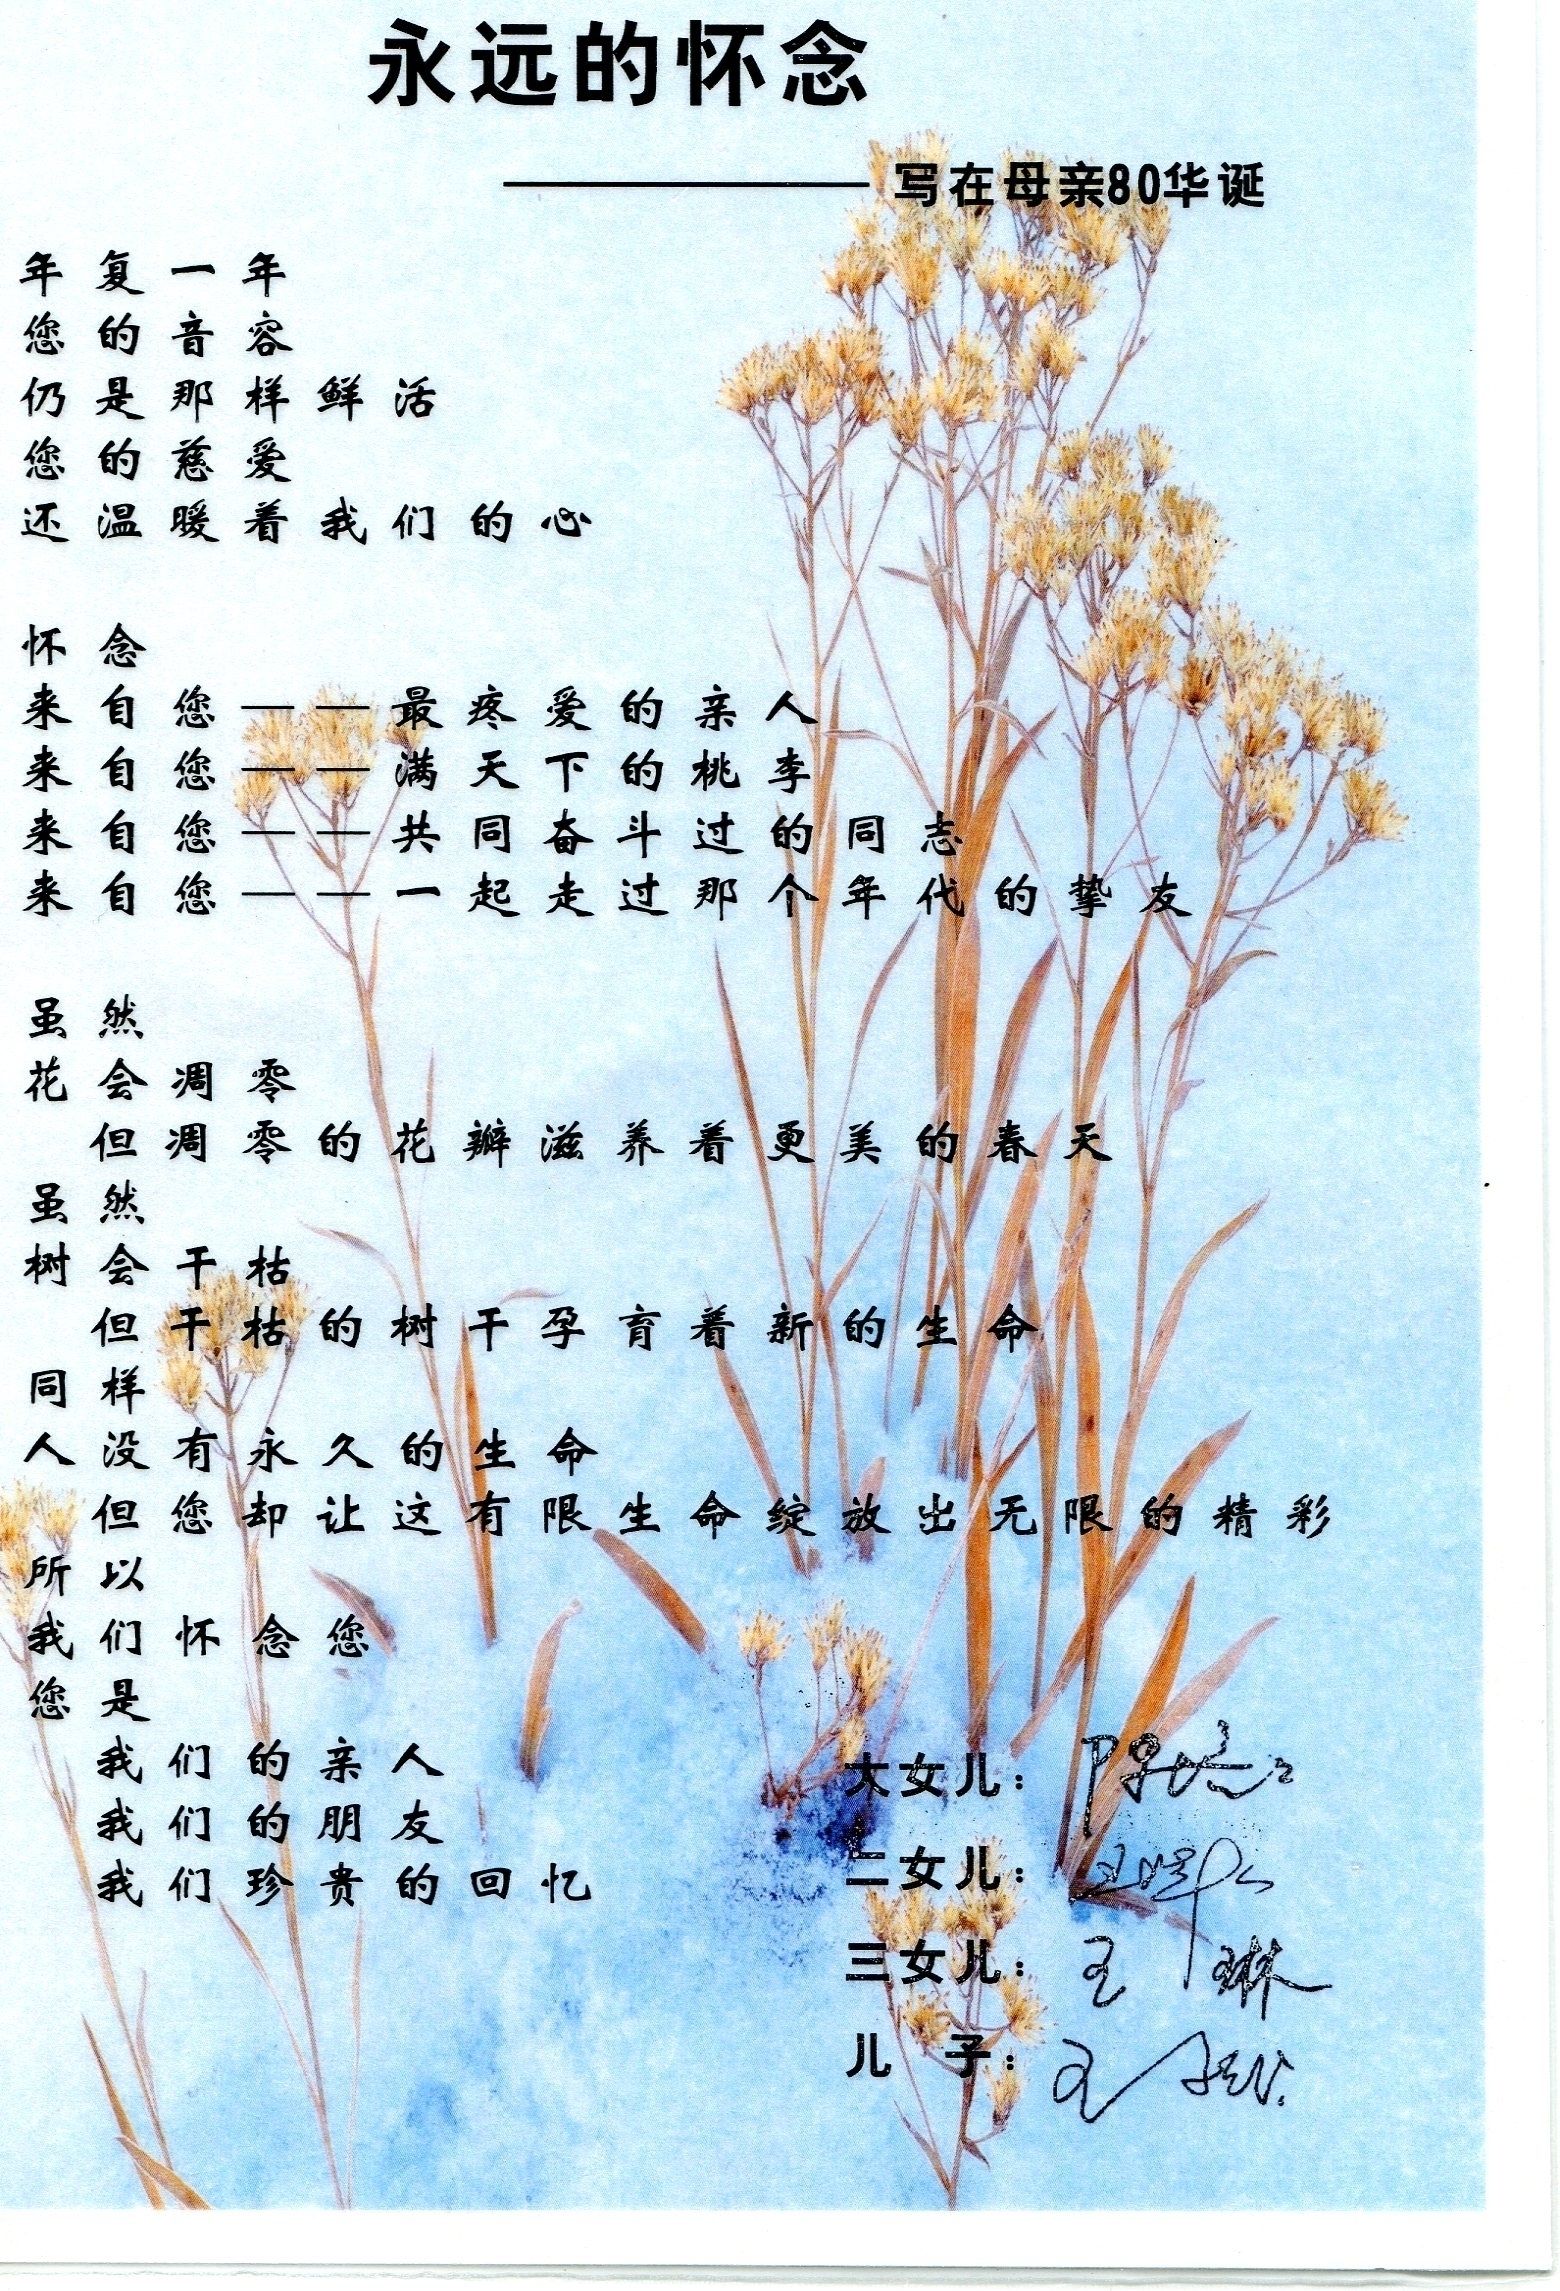 永远的怀念
————写在母亲80华诞
年复一年
您的音容
仍是那样鲜活
您的慈爱
还温暖着我们的心
怀念
来自您——最疼爱的亲人
来自您——满天下的桃李
来自您——共同奋斗过的同志
来自您——一起走过那个年代的挚友
虽然
花会凋零
但凋零的花瓣滋养着更美的春天
虽然
树会干枯
但干枯的树干孕育着新的生命
同样
人没有永久的生命
但您却让这有限生命绽放出无限的精彩
所以
我们怀念您
您是
我们的亲人
我们的朋友
我们珍贵的回忆
大女儿：
二女儿：王
三女儿：王琳
儿子：王